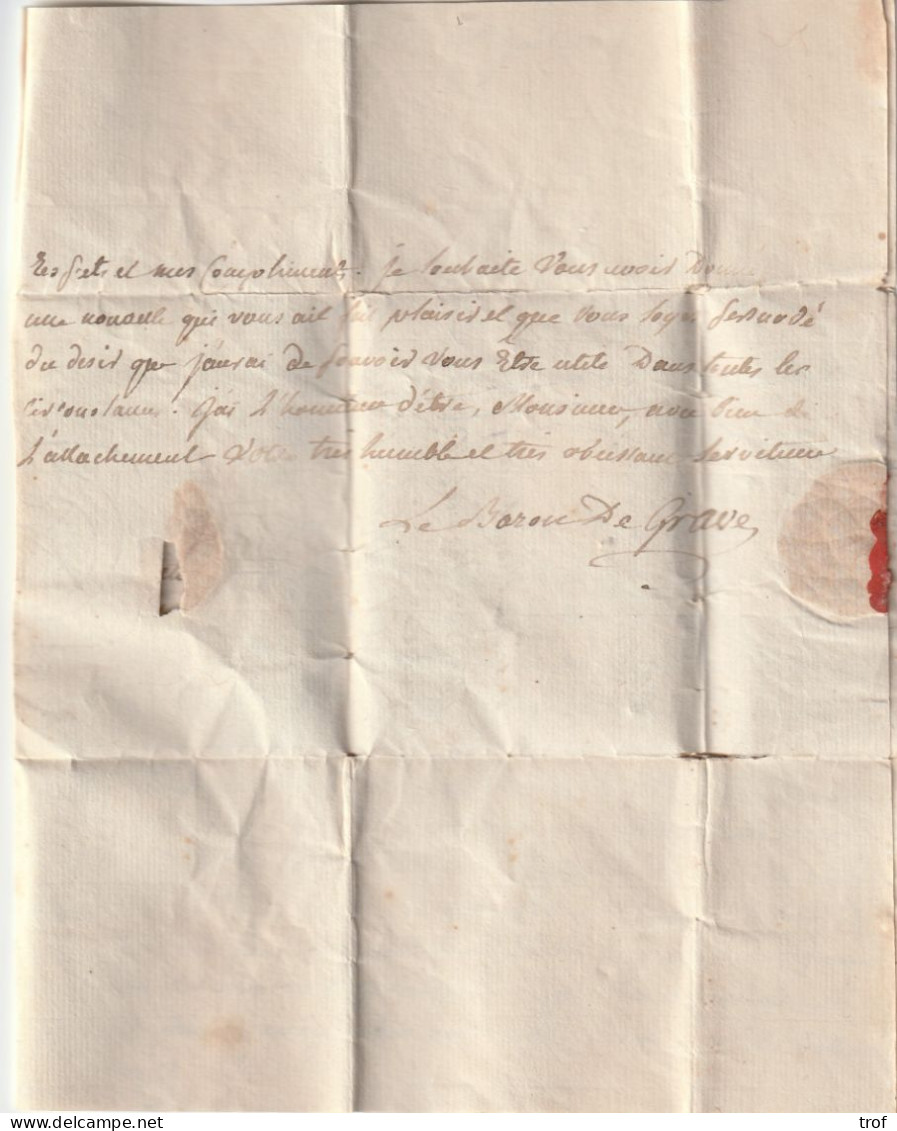 Respets et mes Compliments. je souhaite Vous avoir Donné
une nouvelle qui vous ait fait plaisir et que vous soyes persuadé
du desir que j'aurai de pouvoir Vous Etre utile Dans toutes les
circonstances. j'ai l'honneur d'être, Monsieur, avec bien de
l'attachement Votre tres humble et très obeissant serviteur
Le Baron De Grave
delcampe.net
trof